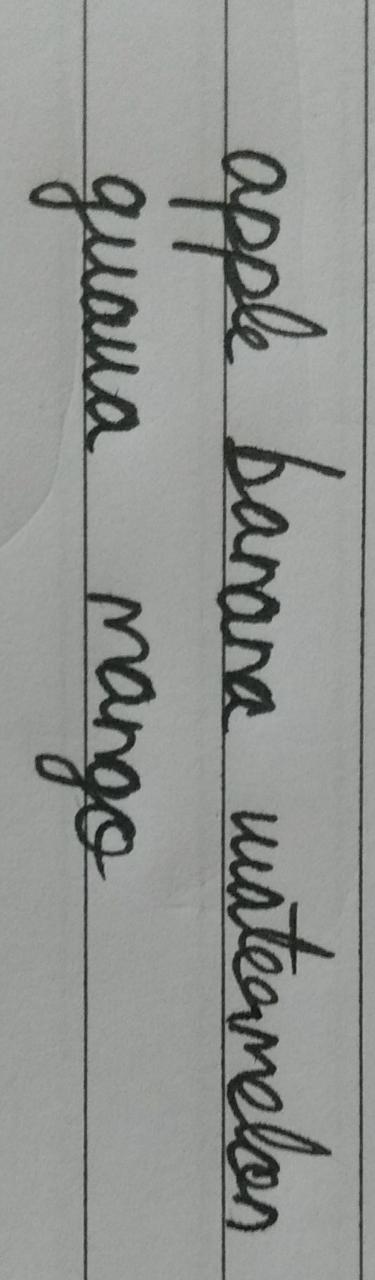 apple banana watermelon
guava mango